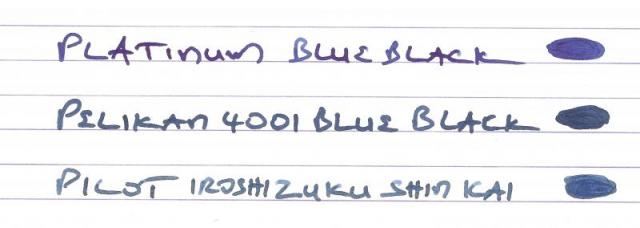 PLATINUM BLUE BLACK
PELIKAN 4001 BLUE BLACK
PILOT IROSHIZUKU SHIN KAI